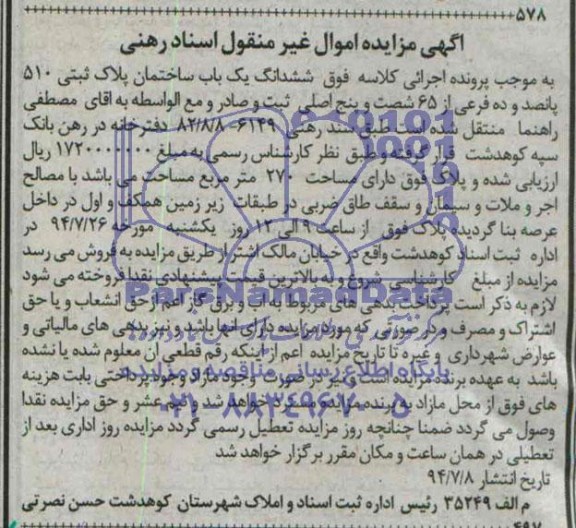 ۵۷۸
آگهی مزایده اموال غیر منقول اسناد رهنی
به موجب پرونده اجرائی کلاسه فوق ششدانگ یک باب ساختمان پلاک ثبتی ۵۱۰
پانصد و ده فرعی از ۶۵ شصت و پنج اصلی ثبت و صادر و مع الواسطه به اقای مصطفی
راهنما منتقل شده است طبق سند رهنی ۶۱۴۹-۸۲/۸/۸ دفترخانه در رهن بانک
سپه کوهدشت قرار گرفته و طبق نظر کارشناس رسمی به مبلغ ۱۷۲۰۰۰۰۰۰۰ ریال
ارزیابی شده و پلاک فوق دارای مساحت ۲۷۰ متر مربع مساحت می باشد با مصالح
اجر و ملات و سیمان و سقف طاق ضربی در طبقات زیر زمین همکف و اول در داخل
عرصه بنا گردیده پلاک فوق از ساعت ۹ الی ۱۲ روز یکشنبه مورخه ۹۴/۷/۲۶ در
اداره ثبت اسناد کوهدشت واقع در خیابان مالک اشتر از طریق مزایده به فروش می رسد
مزایده از مبلغ کارشناسی شروع و به بالاترین قیمت پیشنهادی نقدا فروخته می شود
لازم به ذکر است پرداخت بدهی های مربوط به اب و برق گاز اعم از حق انشعاب و یا حق
اشتراک و مصرف و در صورتی که مورد مزایده دارای انها باشد و نیز بدهی های مالیاتی و
عوارض شهرداری و غیره تا تاریخ مزایده اعم از اینکه رقم قطعی ان معلوم شده یا نشده
باشد به عهده برنده مزایده است و نیز در صورت وجود مازاد وجوه پرداختی بابت هزینه
های فوق از محل مازاد به برنده مزایده مسترد خواهد شد و نیم عشر و حق مزایده نقدا
وصول می گردد ضمنا چنانچه روز مزایده تعطیل رسمی گردد مزایده روز اداری بعد از
تعطیلی در همان ساعت و مکان مقرر برگزار خواهد شد
تاریخ انتشار ۹۴/۷/۸
م الف ۳۵۲۴۹ رئیس اداره ثبت اسناد و املاک شهرستان کوهدشت حسن نصرتی
ParsNamadData
پایگاه اطلاع رسانی مناقصه و مزایده
۰۲۱-۸۸۳۴۹۶۷۰-۵